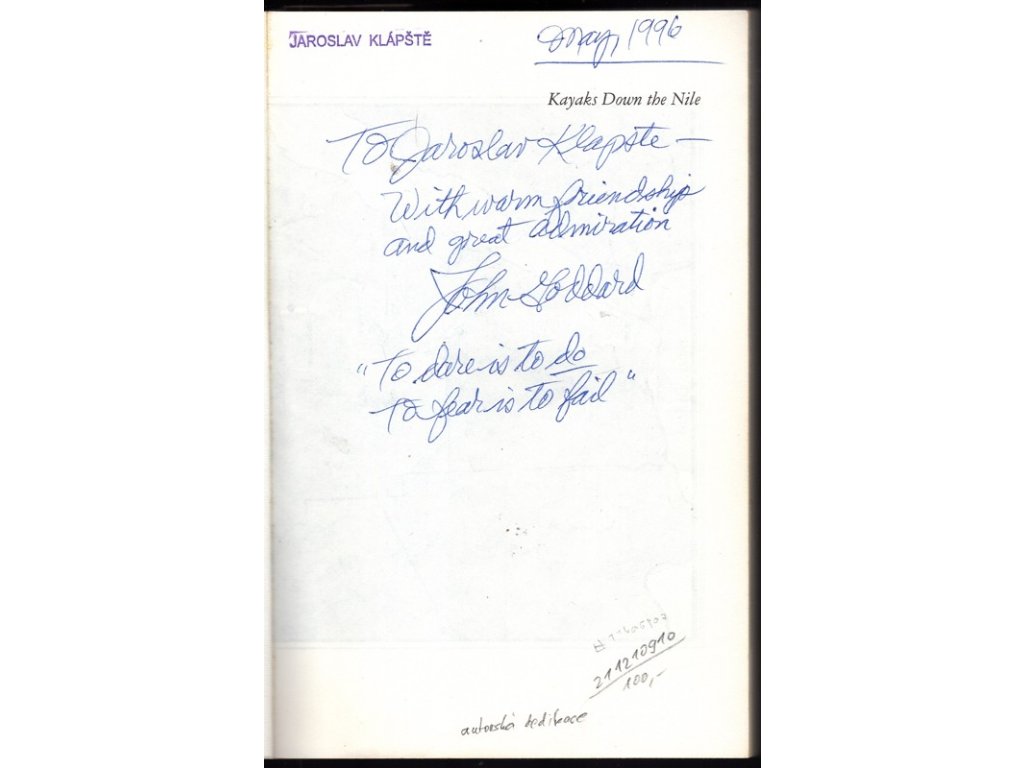 JAROSLAV KLÁPŠTĚ
May, 1996
Kayaks Down the Nile
To Jaroslav Klapste —
With warm friendship
and great admiration
John Goddard
"To dare is to do
To fear is to fail"
211210910
100,-
autorská dedikace